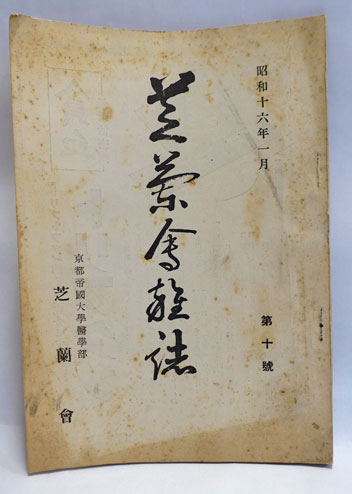 昭和十六年一月
第十號
芝蘭會雜誌
京都帝國大學醫學部
芝蘭會